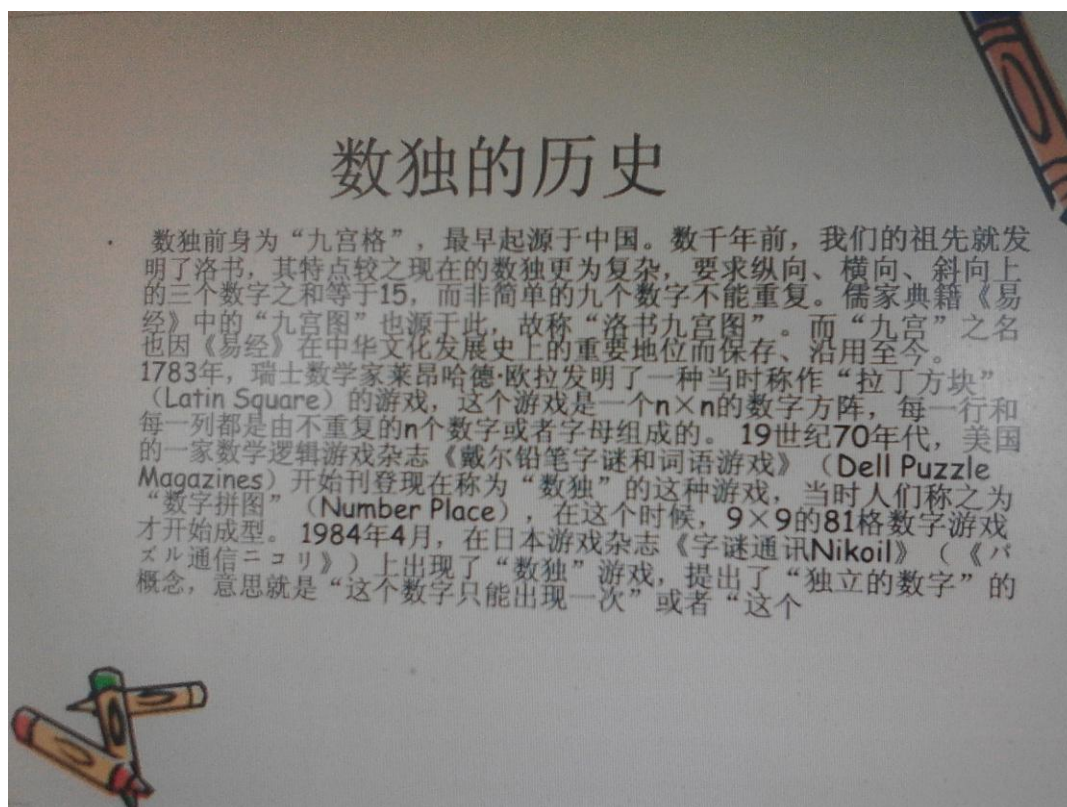 数独的历史
数独前身为“九宫格”，最早起源于中国。数千年前，我们的祖先就发
明了洛书，其特点较之现在的数独更为复杂，要求纵向、横向、斜向上
的三个数字之和等于15，而非简单的九个数字不能重复。儒家典籍《易
经》中的“九宫图”也源于此，故称“洛书九宫图”。而“九宫”之名
也因《易经》在中华文化发展史上的重要地位而保存、沿用至今。
1783年，瑞士数学家莱昂哈德·欧拉发明了一种当时称作“拉丁方块”
（Latin Square）的游戏，这个游戏是一个n×n的数字方阵，每一行和
每一列都是由不重复的n个数字或者字母组成的。19世纪70年代，美国
的一家数学逻辑游戏杂志《戴尔铅笔字谜和词语游戏》（Dell Puzzle
Magazines）开始刊登现在称为“数独”的这种游戏，当时人们称之为
“数字拼图”（Number Place），在这个时候，9×9的81格数字游戏
才开始成型。1984年4月，在日本游戏杂志《字谜通讯Nikoil》（《パ
ズル通信ニコリ》）上出现了“数独”游戏，提出了“独立的数字”的
概念，意思就是“这个数字只能出现一次”或者“这个